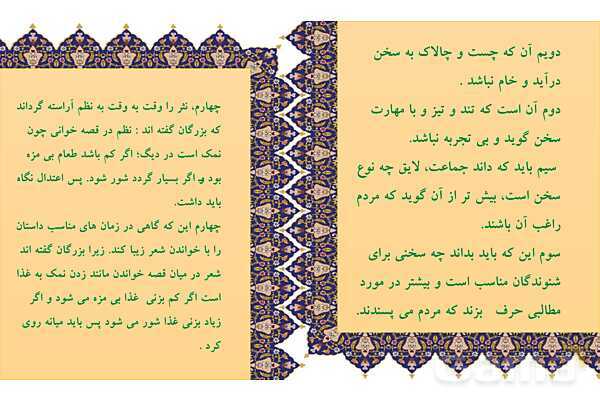 دویم آن که چست و چالاک به سخن
درآید و خام نباشد .
دوم آن است که تند و تیز و با مهارت
سخن گوید و بی تجربه نباشد.
سیم باید که داند جماعت، لایق چه نوع
سخن است، بیش تر از آن گوید که مردم
راغب آن باشند.
سوم این که باید بداند چه سخنی برای
شنوندگان مناسب است و بیشتر در مورد
مطالبی حرف بزند که مردم می پسندند.
چهارم، نثر را وقت به وقت به نظم آراسته گرداند
که بزرگان گفته اند : نظم در قصه خوانی چون
نمک است در دیگ؛ اگر کم باشد طعام بی مزه
بود و اگر بسیار گردد شور شود. پس اعتدال نگاه
باید داشت.
چهارم این که گاهی در زمان های مناسب داستان
را با خواندن شعر زیبا کند. زیرا بزرگان گفته اند
شعر در میان قصه خواندن مانند زدن نمک به غذا
است اگر کم بزنی غذا بی مزه می شود و اگر
زیاد بزنی غذا شور می شود پس باید میانه روی
کرد .